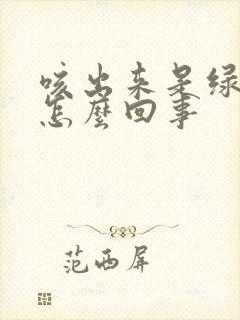 咳出来是绿
怎麼回事
范西屏